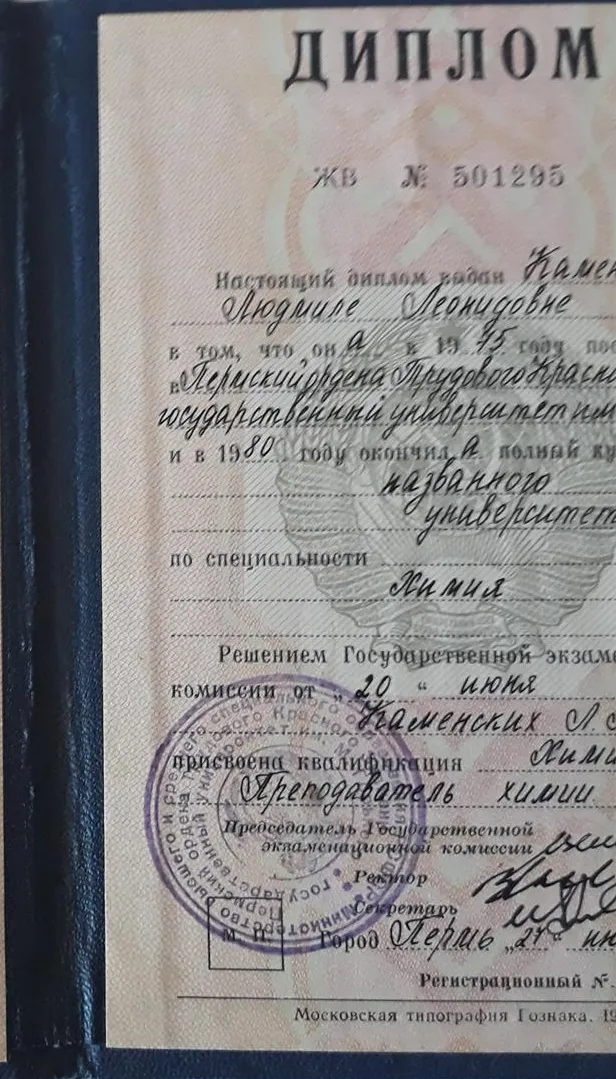 ДИПЛОМ
ЖВ № 501295
Настоящий диплом выдан Камен
Людмиле Леонидовне
в том, что он а в 19 75 году пос
в Пермский ордена Трудового Красно
государственный университет им
и в 1980 году окончил а полный ку
названного
университет
по специальности
Химия
Решением Государственной экзаме
комиссии от „20“ июня
Каменских Л
присвоена квалификация Хими
Преподаватель химии
Председатель Государственной
экзаменационной комиссии
Ректор
Секретарь
М. П. Город Пермь „27“ ию
Регистрационный №
Московская типография Гознака. 19